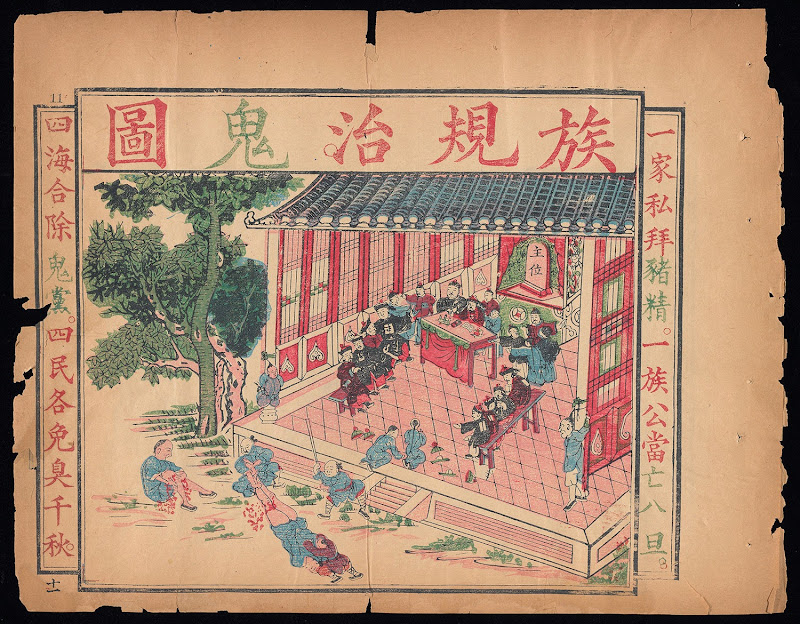 族規治鬼圖
一家私拜豬精。一族公當亡八旦
主位
11
四海合除鬼黨。四民各免臭千秋。
十一